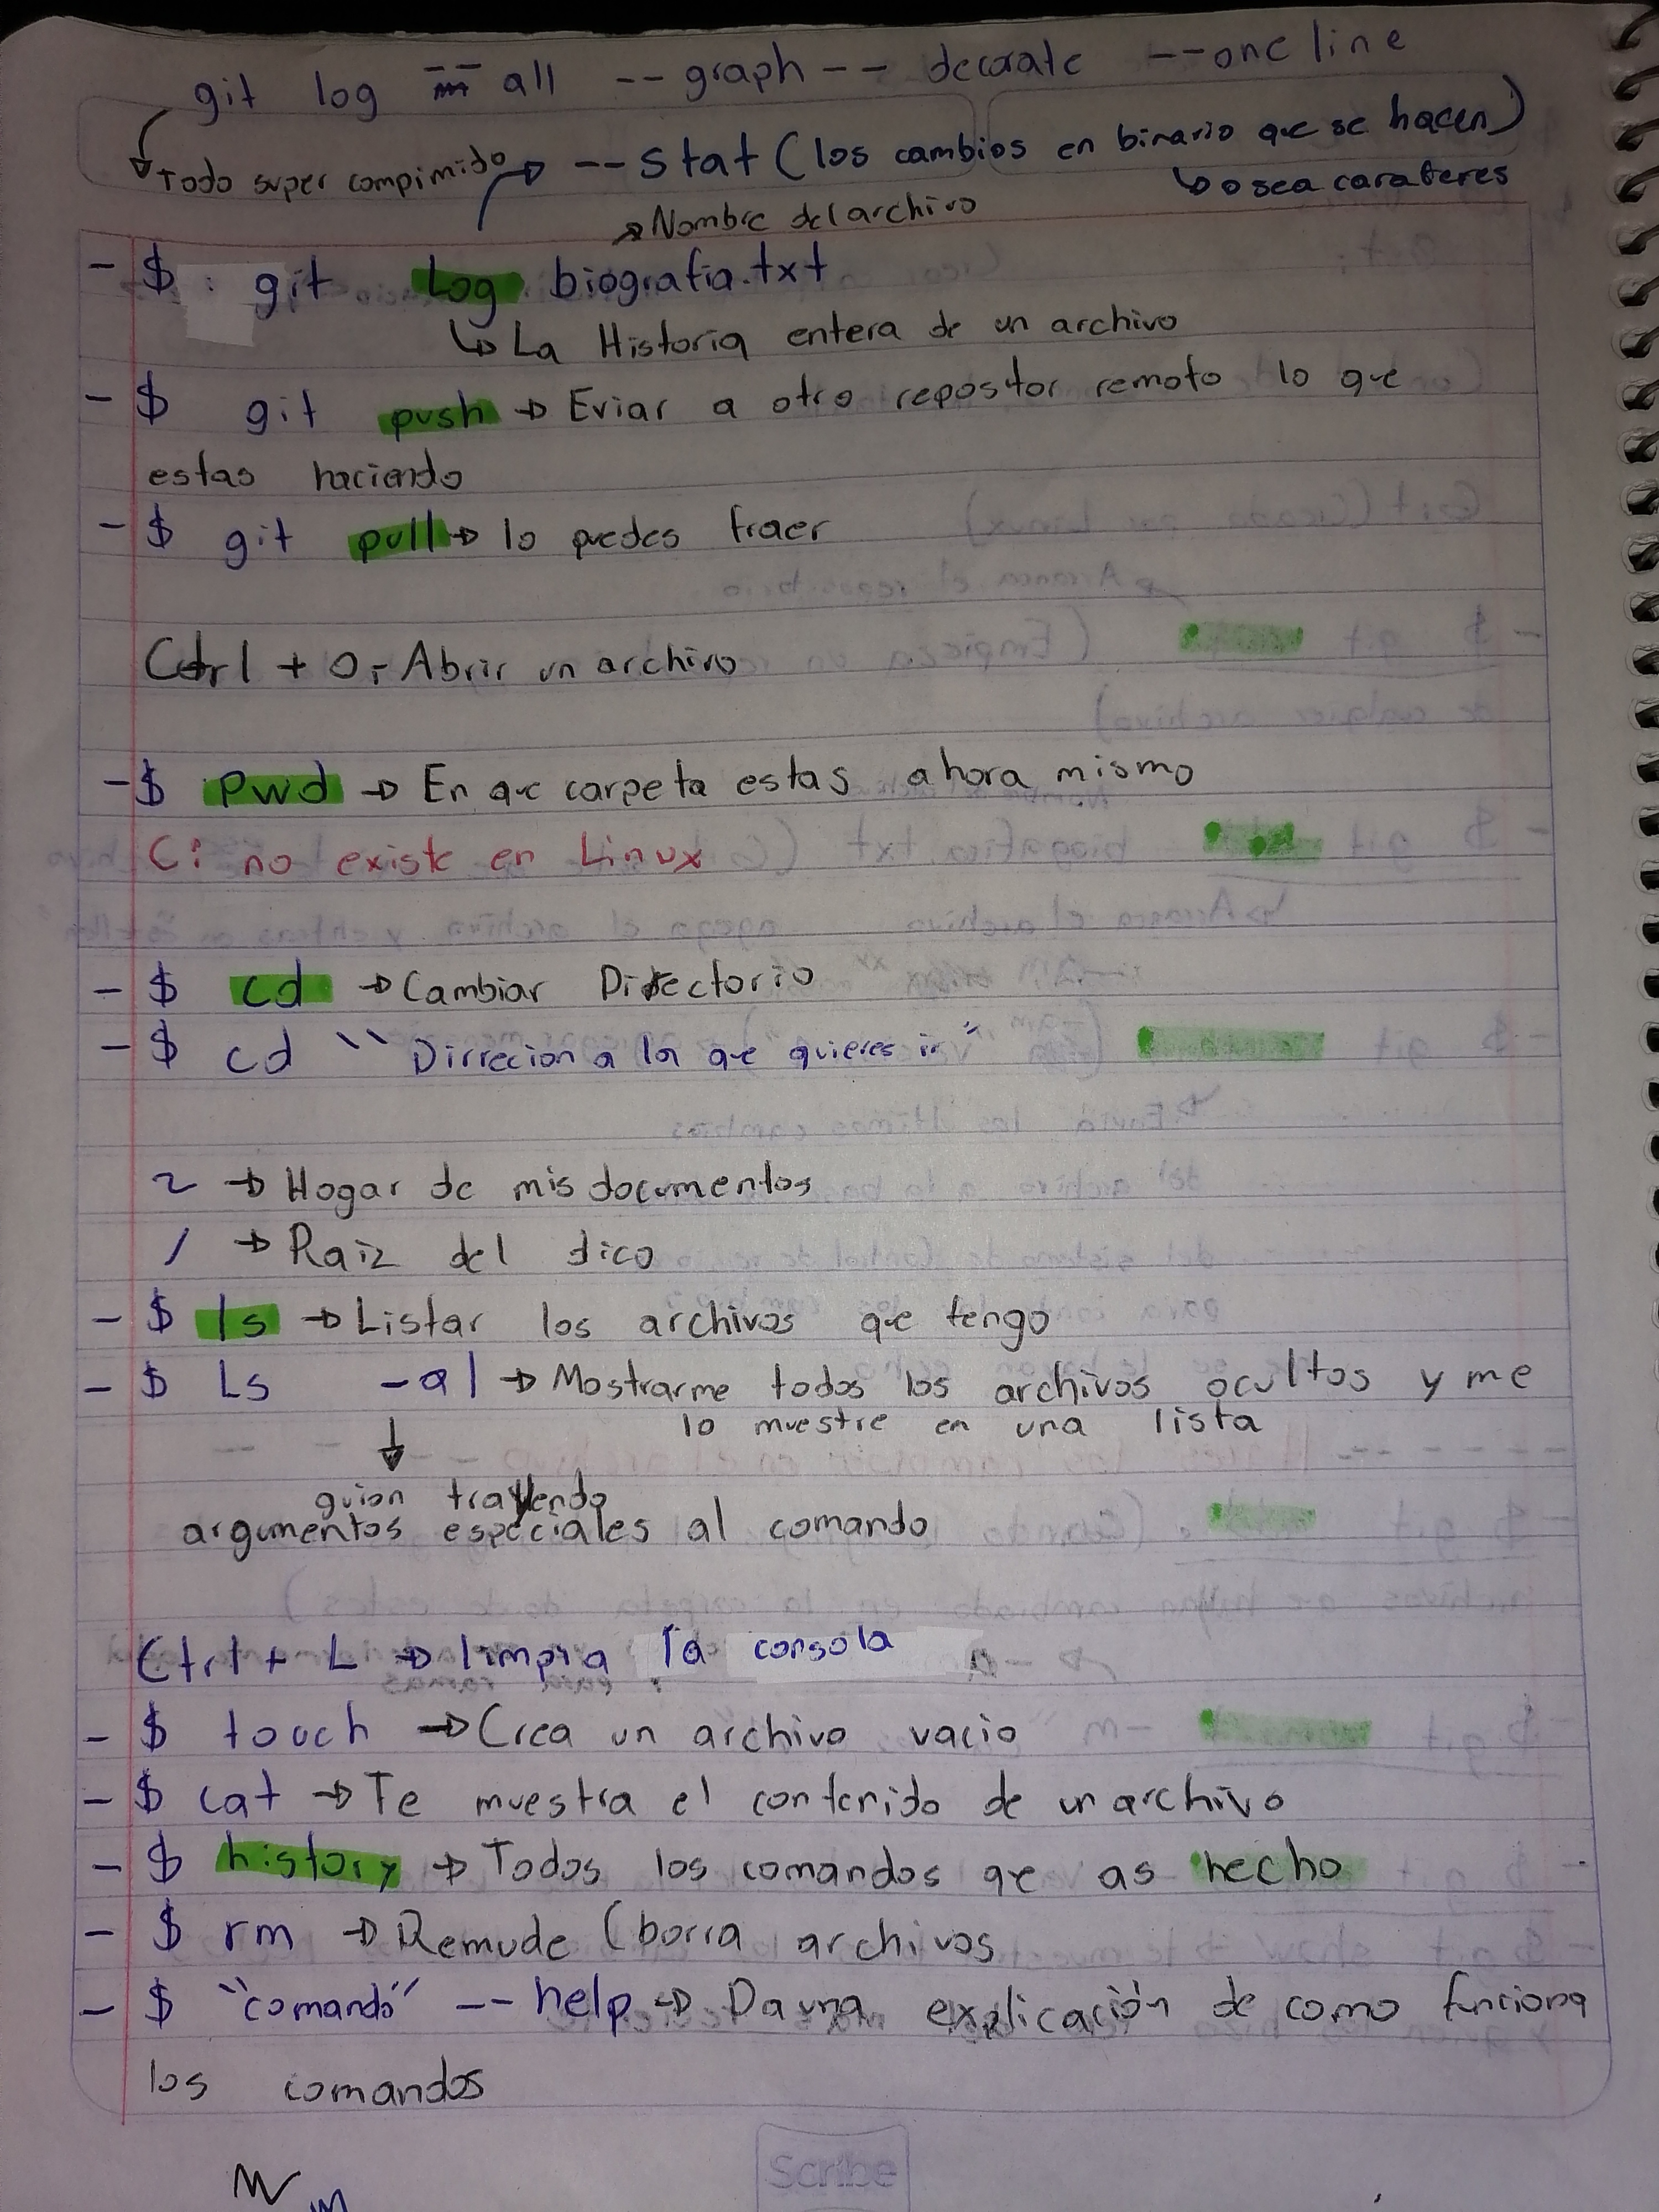 git log -- all -- graph -- decorate --one line
Todo super compimido --stat (los cambios en binario que se hacen)
o sea caracteres
Nombre del archivo
- $ : git Log biografia.txt
La Historia entera de un archivo
- $ git push → Eviar a otro repositor remoto lo que
estas haciendo
- $ git pull → lo puedes traer
Ctrl + O,- Abrir un archivo
- $ pwd → En que carpeta estas ahora mismo
C: no existe en Linux
- $ cd → Cambiar Directorio
- $ cd "Dirrecion a la que quieres ir"
~ → Hogar de mis documentos
/ → Raiz del dico
- $ ls → Listar los archivos que tengo
- $ Ls -al → Mostrarme todos los archivos ocultos y me
lo muestre en una lista
guion trayendo
argumentos especiales al comando
Ctrl + L → limpia la consola
- $ touch → Crea un archivo vacio
- $ cat → Te muestra el contenido de un archivo
- $ history → Todos los comandos que as hecho
- $ rm → Remude (borra archivos
- $ "comando" -- help → Da una explicación de como funciona
los comandos
Scribe